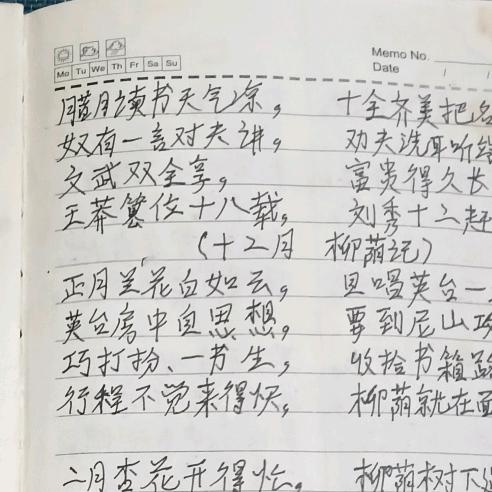 Memo No.
Mo Tu We Th Fr Sa Su
Date / /
腊月读书天气凉， 十全齐美把名
奴有一言对夫讲， 劝夫洗耳听
文武双全享， 富贵得久长
王莽篡位十八载， 刘秀十二赶
（十二月 柳荫记）
正月兰花白如云， 且唱英台一
英台房中自思想， 要到尼山
巧打扮、一书生， 收拾书箱
行程不觉来得快， 柳荫就在面
二月杏花开得忙， 柳荫树下